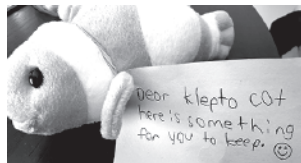 Dear Klepto Cat
here is something
for you to keep.